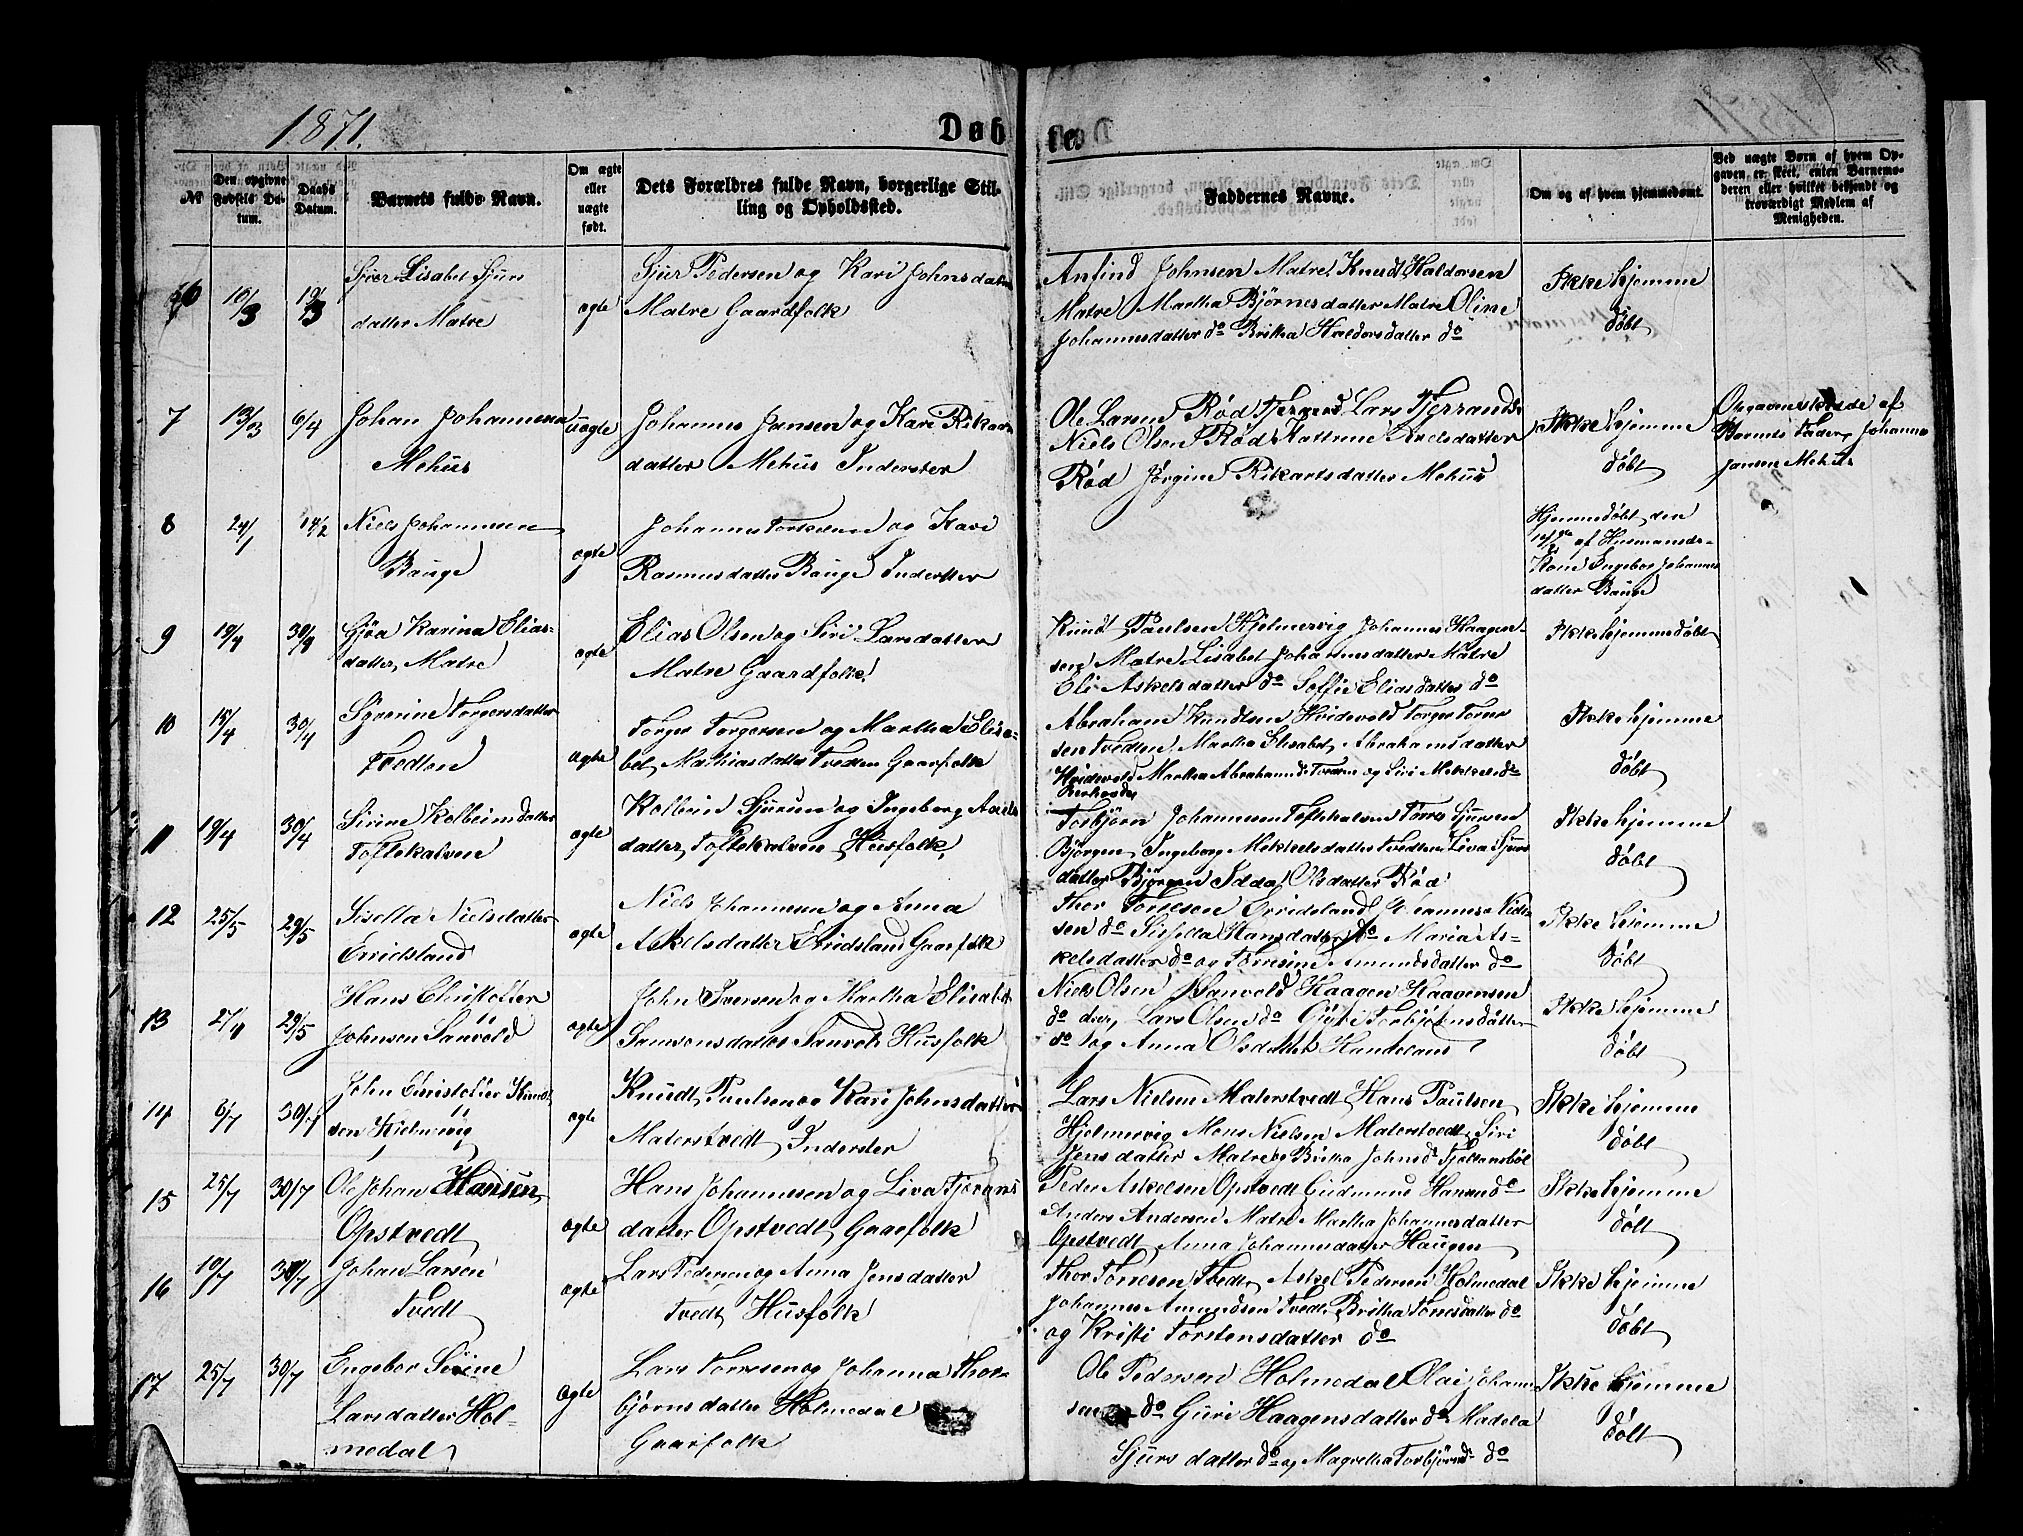 1871.
Døb
te
№
Den opgivne Fødsels Datum.
Daabs Datum.
Barnets fulde Navn.
Om ægte eller uægte født.
Dets Forældres fulde Navn, borgerlige Stilling og Opholdssted.
Faddernes Navne.
Om og af hvem hjemmedøbt.
Ved uægte Børn af hvem Opgaven er skeet, enten Barnemoderen eller hvilket bekjendt og troværdigt Medlem af Menigheden.
6
10/3
19/3
Lisabet Sjurs
datter Matre
ægte
Sjur Pedersen og Kari Johnsdatter
Matre Gaardfolk
Anfind Johnsen Matre Knudt Haldorsen
Matre Martha Bjørnesdatter Matre Oline
Johannesdatter do Britha Haldorsdatter do
Ikke hjemme
døbt
7
13/3
6/4
Johan Johannesen
Mehus
uægte
Johannes Jansen og Kari Rikarts
datter Mehus Inderster
Ole Larsen Rød Lars
Niels Olsen Rød Nielsdatter
Rød Jørgine Rikartsdatter Mehus
Ikke hjemme
døbt
Opgaven skede af
Barnets Fader Johannes
Jansen Mehus
8
24/1
14/2
Niels Johannesen
Bauge
ægte
Johannes Torkelsen og Kari
Rasmusdatter Bauge Inderster
Hjemmedøbt den
14/2 af Husmands
Kone Ingebor Johannes
datter Bauge
9
19/4
30/4
Gjøa Karina Elias-
datter Matre
ægte
Elias Olsen og Siri Larsdatter
Matre Gaardfolk
Knudt Paulsen Hjelmervig Johannes Haagen-
sen Matre Lisabet Johannesdatter Matre
Eli Askelsdatter do Soffie Eliasdatter do
Ikke hjemmedøbt
10
15/4
30/4
Torgersdatter
Tvedten
ægte
Torger Torgersen og Martha Elisa-
bet Mathiasdatter Tvedten Gaarfolk
Abraham Knudtsen Hvidevold Torger Torger
sen Tvedten Martha Elisabet Abrahamsdatter
Hvidevold Martha Abrahamsd Tvedten og Siri Mekkelsd
Ikke hjemme
døbt
11
19/4
30/4
Sirine Kolbeinsdatter
Toftekalven
ægte
Kolbein Sjursen og Ingeborg Axels
datter Toftekalven Husfolk
Torbjörn Johannesen Toftekalven Torres Sjursen
Björgen Ingeborg Mekkelsdatter Tvedten Liva Sjurs
datter Björgen Idda Olsdatter Rød
Ikke hjemme
døbt
12
25/5
29/5
Sisella Nielsdatter
Erridsland
ægte
Niels Johannesen og Anna
Askelsdatter Erridsland Gaarfolk
Thor Torresen Erridsland Johannes
sen do Sisella Hansdatter do Maria As-
kelsdatter do og Torresine Amundsdatter do
Ikke hjemme
døbt
13
27/4
29/5
Hans Christoffer
Johnsen Sanvold
ægte
John Iversen og Martha Elisabet
Samsonsdatter Sanvold Husfolk
Niels Olsen Sanvold Haagen Haavensen
do Lars Olsen do Torbjörnsdatter
do og Anna Olsdatter Handeland
Ikke hjemme
døbt
14
6/7
30/7
John Christoffer Knudt
sen Hjelmervig
ægte
Knudt Paulsen og Kari Johnsdatter
Materstvedt Inderster
Lars Nielsen Materstvedt Hans Paulsen
Hjelmervig Mons Nielsen Materstvedt Siri
Jensdatter Matre og Britha Johnsd
Ikke hjemme
døbt
15
25/7
30/7
Ole Johan Hansen
Opstvedt
ægte
Hans Johannesen og Liva
datter Opstvedt Gaarfolk
Peder Askelsen Opstvedt Gudmund Hansen do
Anders Andersen Matre Martha Johannesdatter
Opstvedt Anna Johannesdatter Haugen
Ikke hjemme
døbt
16
10/7
30/7
Johan Larsen
Tvedt
ægte
Lars Pedersen og Anna Jensdatter
Tvedt Husfolk
Thor Torresen Tvedt Askel Pedersen Holmedal
Johannes Amundsen Tvedt Britha Torresdatter do
og Kristi Torstensdatter do
Ikke hjemme
døbt
17
25/7
30/7
Engebor Serine
Larsdatter Hol-
medal
ægte
Lars Torresen og Johanna Thor-
bjørnsdatter Holmedal
Gaarfolk
Ole Pedersen Holmedal Olai Johanne
sen do Guri Haagensdatter do Madela
Sjursdatter do og Magretha Torbjörnsd do
Ikke hjemme
døbt